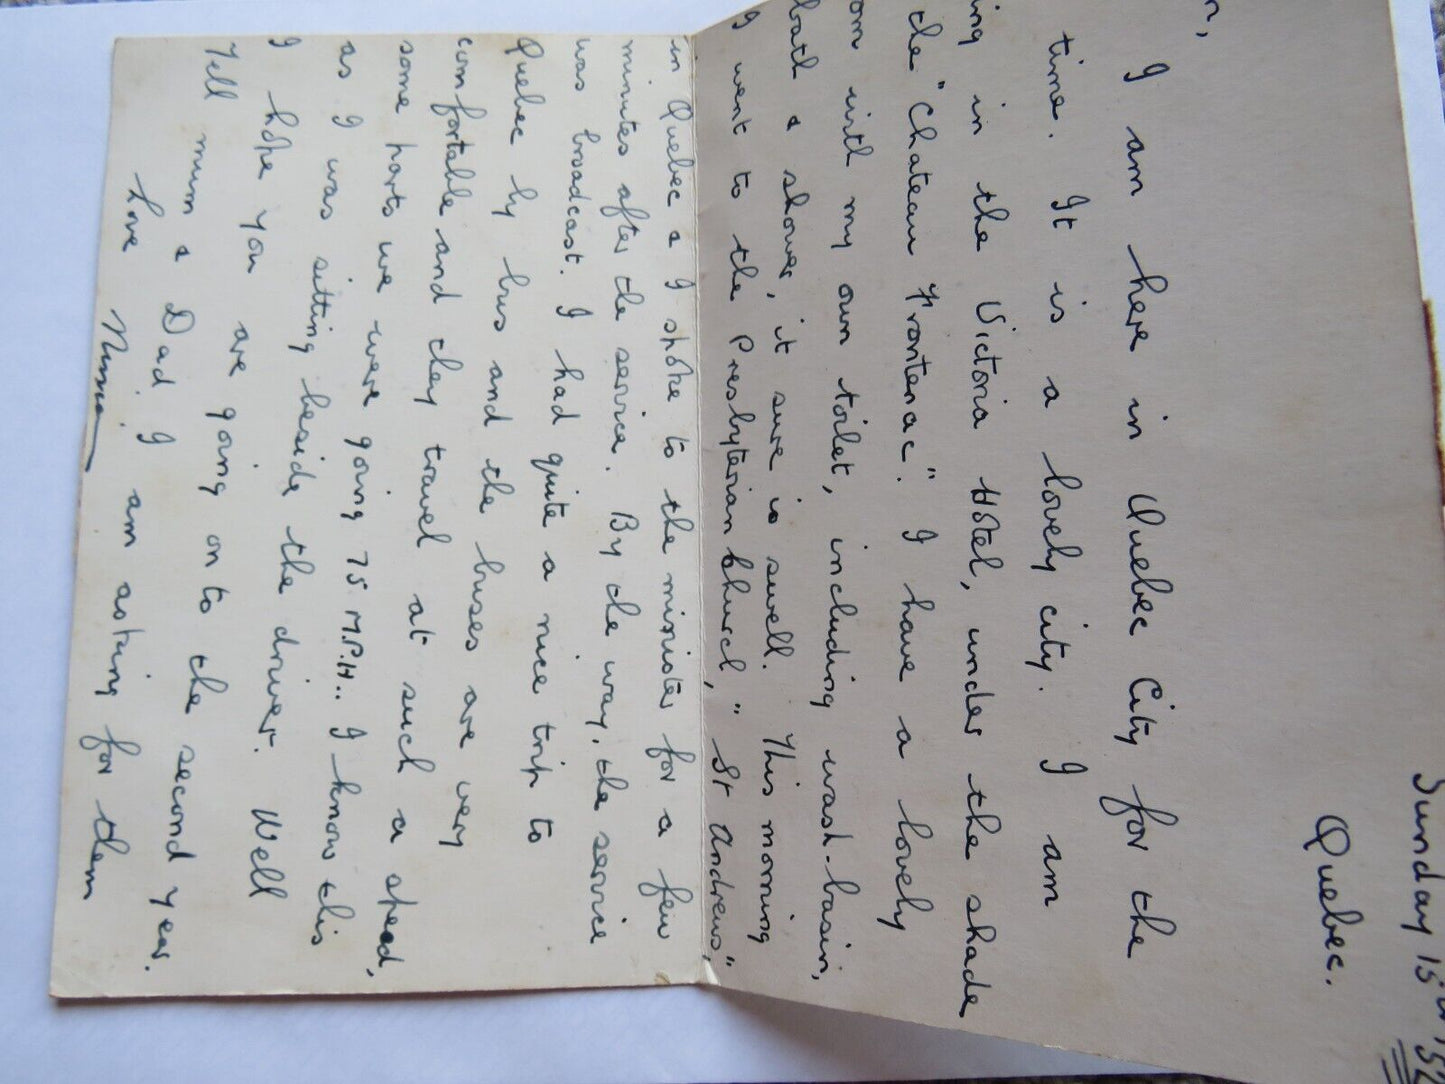 Sunday 15th, '52
Quebec.
n,
I am here in Quebec City for the
time. It is a lovely city. I am
ing in the Victoria Hotel, under the shade
the "Chateau Frontenac". I have a lovely
om with my own toilet, including wash-basin,
bath & shower, it sure is swell. This morning
I went to the Presbyterian Church, "St Andrews,"
in Quebec & I spoke to the minister for a few
minutes after the service. By the way, the service
was broadcast. I had quite a nice trip to
Quebec by bus and the buses are very
comfortable and they travel at such a speed,
some parts we were going 75 M.P.H.. I know this
as I was sitting beside the driver. Well
I hope you are going on to the second year.
Tell mum & Dad I am asking for them
Love